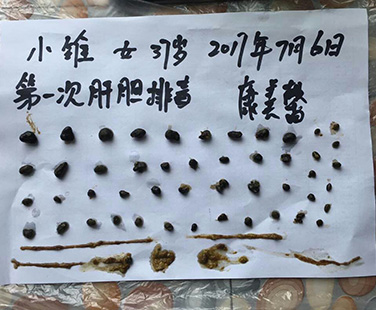 小維 女 37岁 2017年7月6日
第一次肝胆排毒 康美